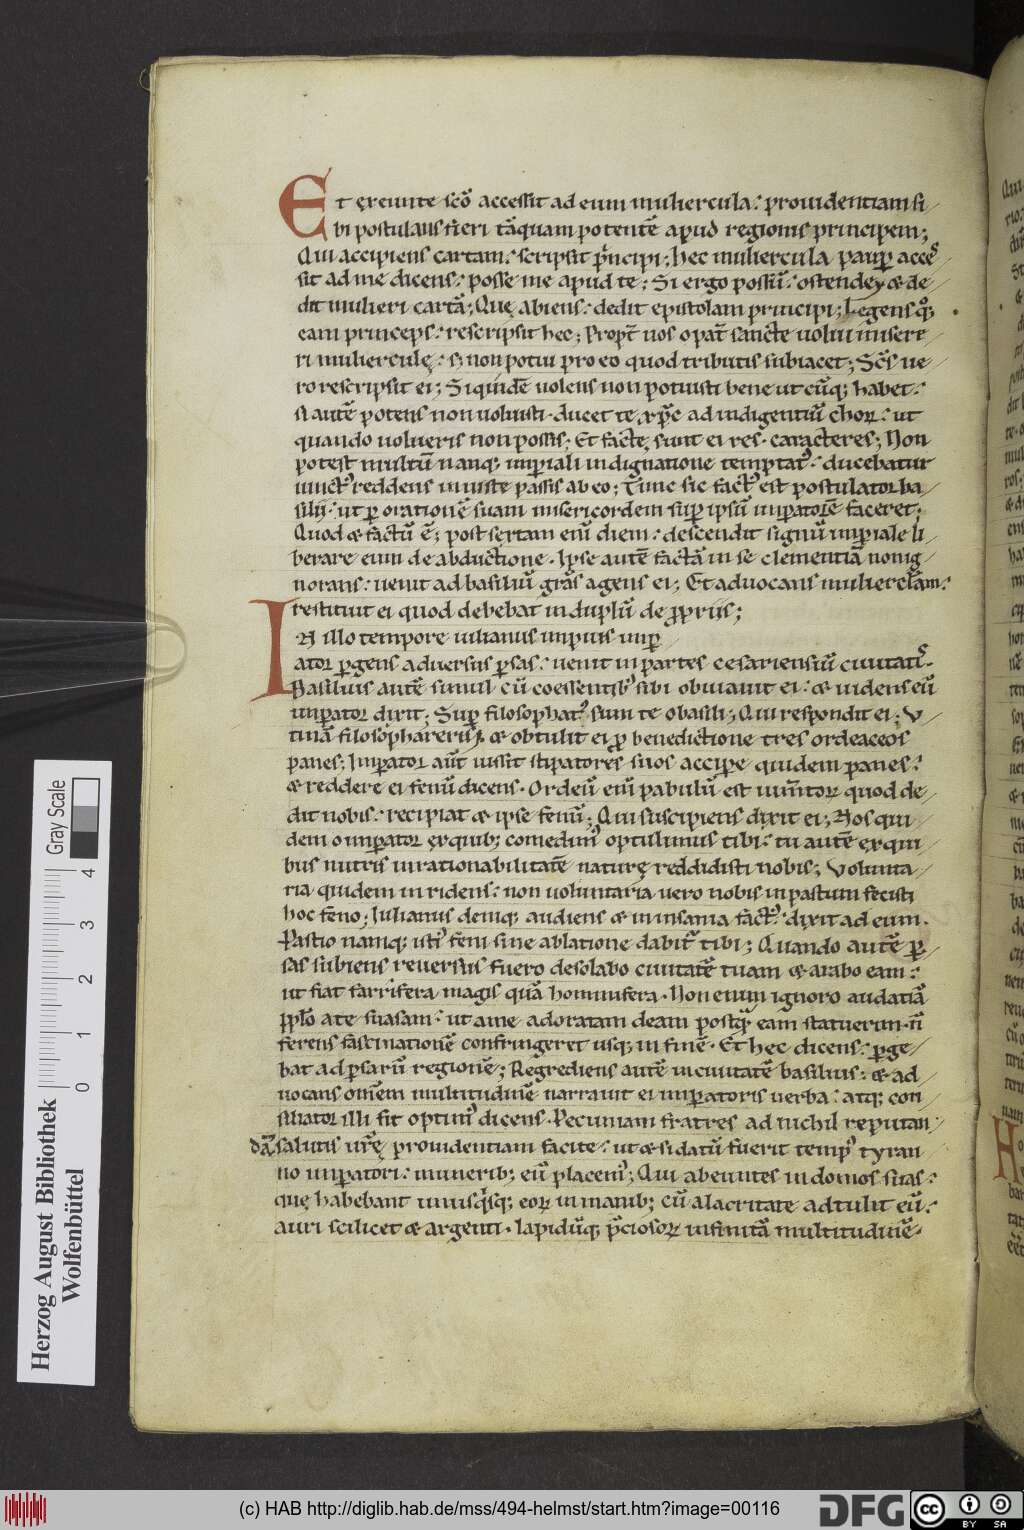 Et exeunte scō accessit ad eum muliercula: prouidentiam si
bi postulans fieri tāquam potentē apud regionis principem;
Qui accipiens cartam: scripsit prīncipi; hec muliercula paup acces
sit ad me dicens: posse me apud te; Si ergo possū: ostende; & de
dit mulieri cartā; Quę abiens: dedit epistolam principi; Legens q;
eam princeps: rescripsit hec; Propt nos o pat sancte uolui misere
ri muliercule: s; non potui pro eo quod tributis subiacet; Scs ue
ro rescripsit ei; Si quidē uolens non potuisti bene ut cūq; habet:
si autē potens non uoluisti ducet te xpc ad indigentiū chor: ut
quando uolueris non possis; Et facte sunt ei res caracteres; Non
potest multū nanq; imperiali indignatione temptat: ducebatur
uinct reddens iniuste passis ab eo; Tunc sic fact est postulator ba
silij: ut p orationē suam misericordem sup ipsū impatorē faceret;
Quod & factū ē; post sertam enī diem: descendit signū imperiale li
berare eum de abductione. Ipse autē factā in se clementiā non ig
norans: uenit ad basiliū gras agens ei; Et aduocans mulierclam:
restituit ei quod debebat in duplū de propriis;
IN illo tempore iulianus impius imp
ator pgens aduersus psas: uenit in partes cesariensiū ciuitatis.
Basilius autē simul cū coessentib sibi obuiauit ei: & uidens eū
imperator dixit; Sup filosophat sum te o basili; Qui respondit ei; V
tinā filosophareris; & obtulit ei p benedictione tres ordeaceos
panes; Imperator aut iussit stipatores suos accipe quidem panes:
& reddere ei fenū dicens. Ordeū enī pabulū est iumtor quod de
dit nobis: recipiat & ipse fenū; Qui suscipiens dixit ei; Nos qui
dem o imperator exquib; comedim optulimus tibi: tu autē ex qui
bus nutris inrationabilitatē naturę reddidisti nobis; Volunta
ria quidem inridens: non uoluntaria uero nobis in pastum fecisti
hoc feno; Iulianus deniq; audiens & in insania fact: dixit ad eum.
Pastio namq; isti feni sine ablatione dabit tibi; Quando autē p
sas subiens reuersus fuero desolabo ciuitatē tuam & arabo eam:
ut fiat farrifera magis quā hominifera. Non enim ignoro audatiā
ppli a te suasam: ut a me adoratam deam postq eam statuerim n
ferens fascinationē confringeret usq; in finē. Et hec dicens: pge
bat ad psarū regionē; Regrediens autē in ciuitatē basilius: & ad
uocans omēm multitudinē narrauit ei imperatoris uerba: atq; con
siliator illi fit optim dicens. Pecuniam fratres ad nichil reputan
dā salutis urę prouidentiam facite: ut & si datū fuerit temp tyran
no imperatori: munerib; eū placem; Qui abeuntes in domos suas:
que habebant unusqsq; eor in manib; cū alacritate adtulit eū:
auri scilicet & argenti. lapidūq; pciosor infinitā multitudinē.
Herzog August Bibliothek
Wolfenbüttel
Gray Scale
0 1 2 3 4
(c) HAB http://diglib.hab.de/mss/494-helmst/start.htm?image=00116
DFG
cc BY SA